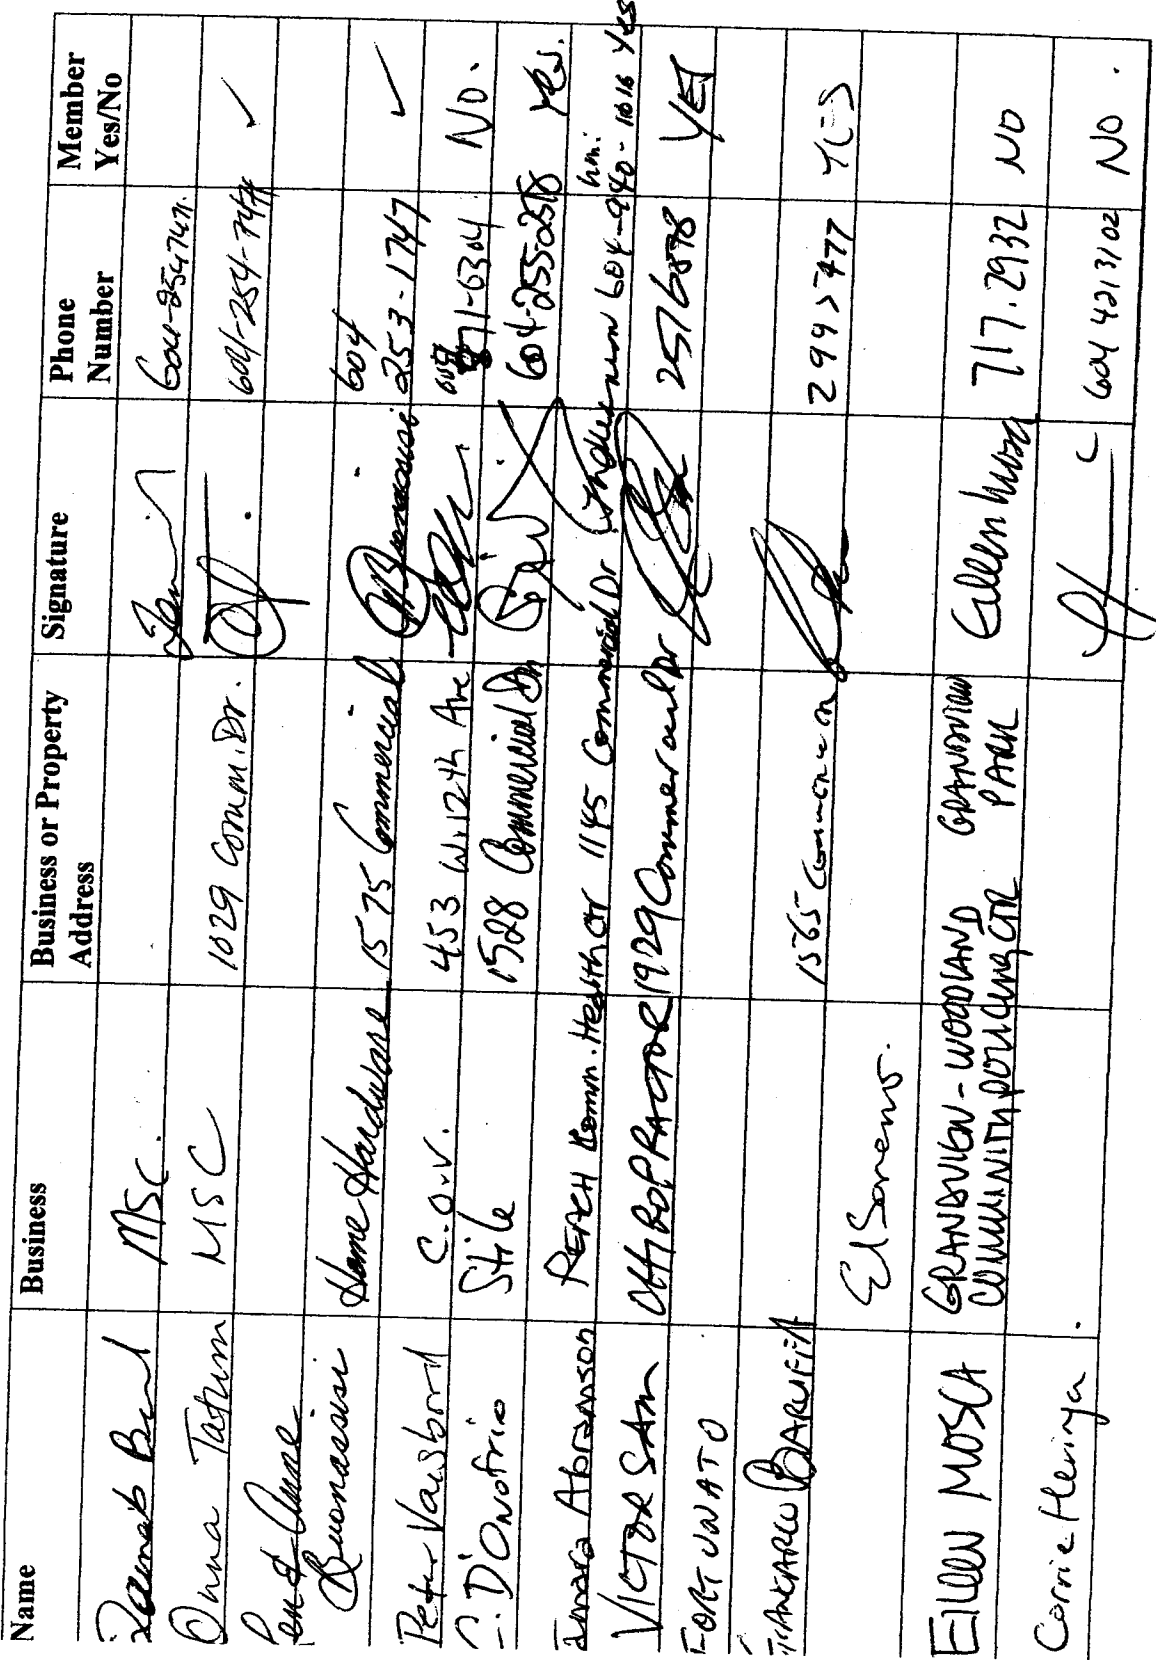 Name Business Business or Property Address Signature Phone Number Member Yes/No
MSC. 604-2547471.
Onna Tatum MSC 1029 Comm. Dr. 604-254-7471 ✓
Anne Buonassisi Home Hardware 1575 Commercial Buonassisi 604 253-1747 ✓
Peter Vaisbord C.O.V. 453 W. 12th Ave 604 871-6304 No.
C. D'Onofrio Stile 1528 Commercial Dr 604-255-2518 Yes.
Abramson REACH Comm. Health Ctr 1145 Commercial Dr 604-940-1616 Yes
VICTOR SAM CHIROPRACTOR 1929 Commercial Dr 2516878 YES
FORTUNATO
BARUFFA El Sereno. 1565 2995477 YES
EILEEN MOSCA GRANDVIEW-WOODLAND COMMUNITY POLICING CTR GRANDVIEW PARK Eileen Mosca 717.2932 NO
Carrie 604 4213102 NO.